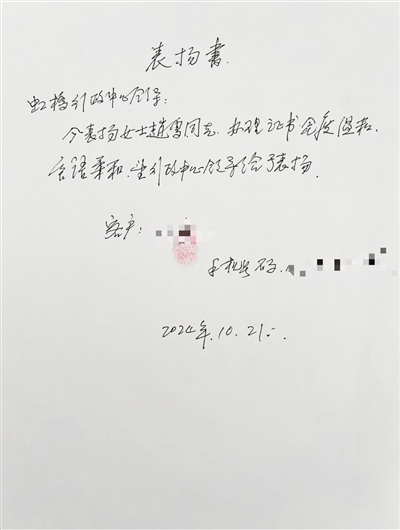 表扬书.
虹桥行政中心领导:
今表扬女士趙雪同志.办理证书態度温和,
言语柔和.望行政中心领导给予表扬.
客户:
手机号码.
2024年.10.21..